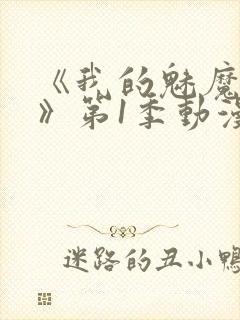 《我的魅魔
》第1季動漫
迷路的丑小鴨